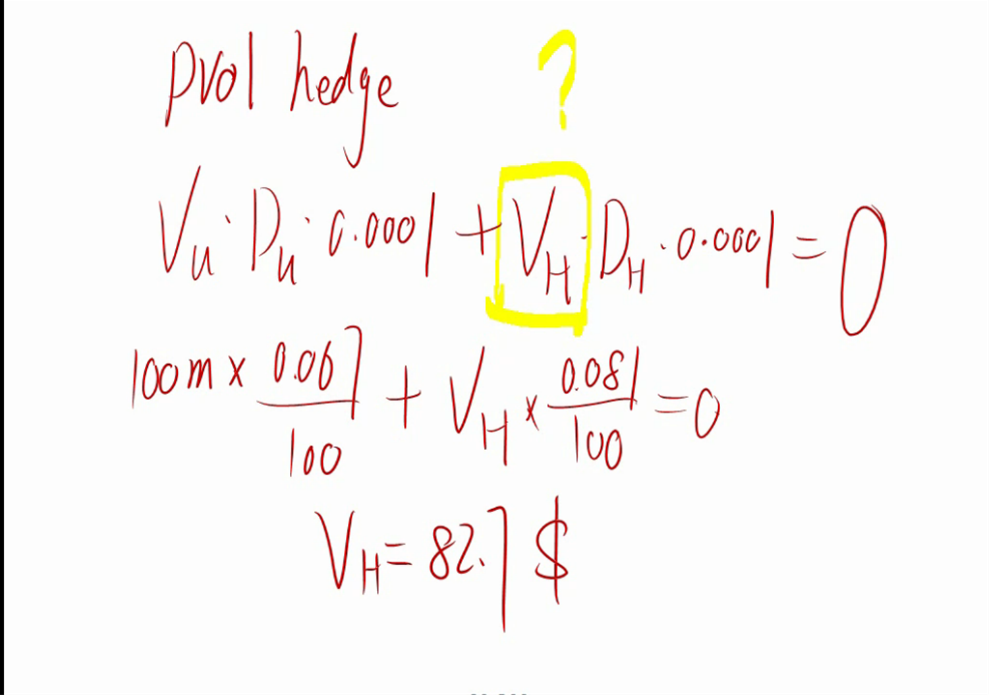 pvol hedge ?
Vu · Du · 0.0001 + VH · DH · 0.0001 = 0
100m x 0.067/100 + VH x 0.081/100 = 0
VH = 82.7 $